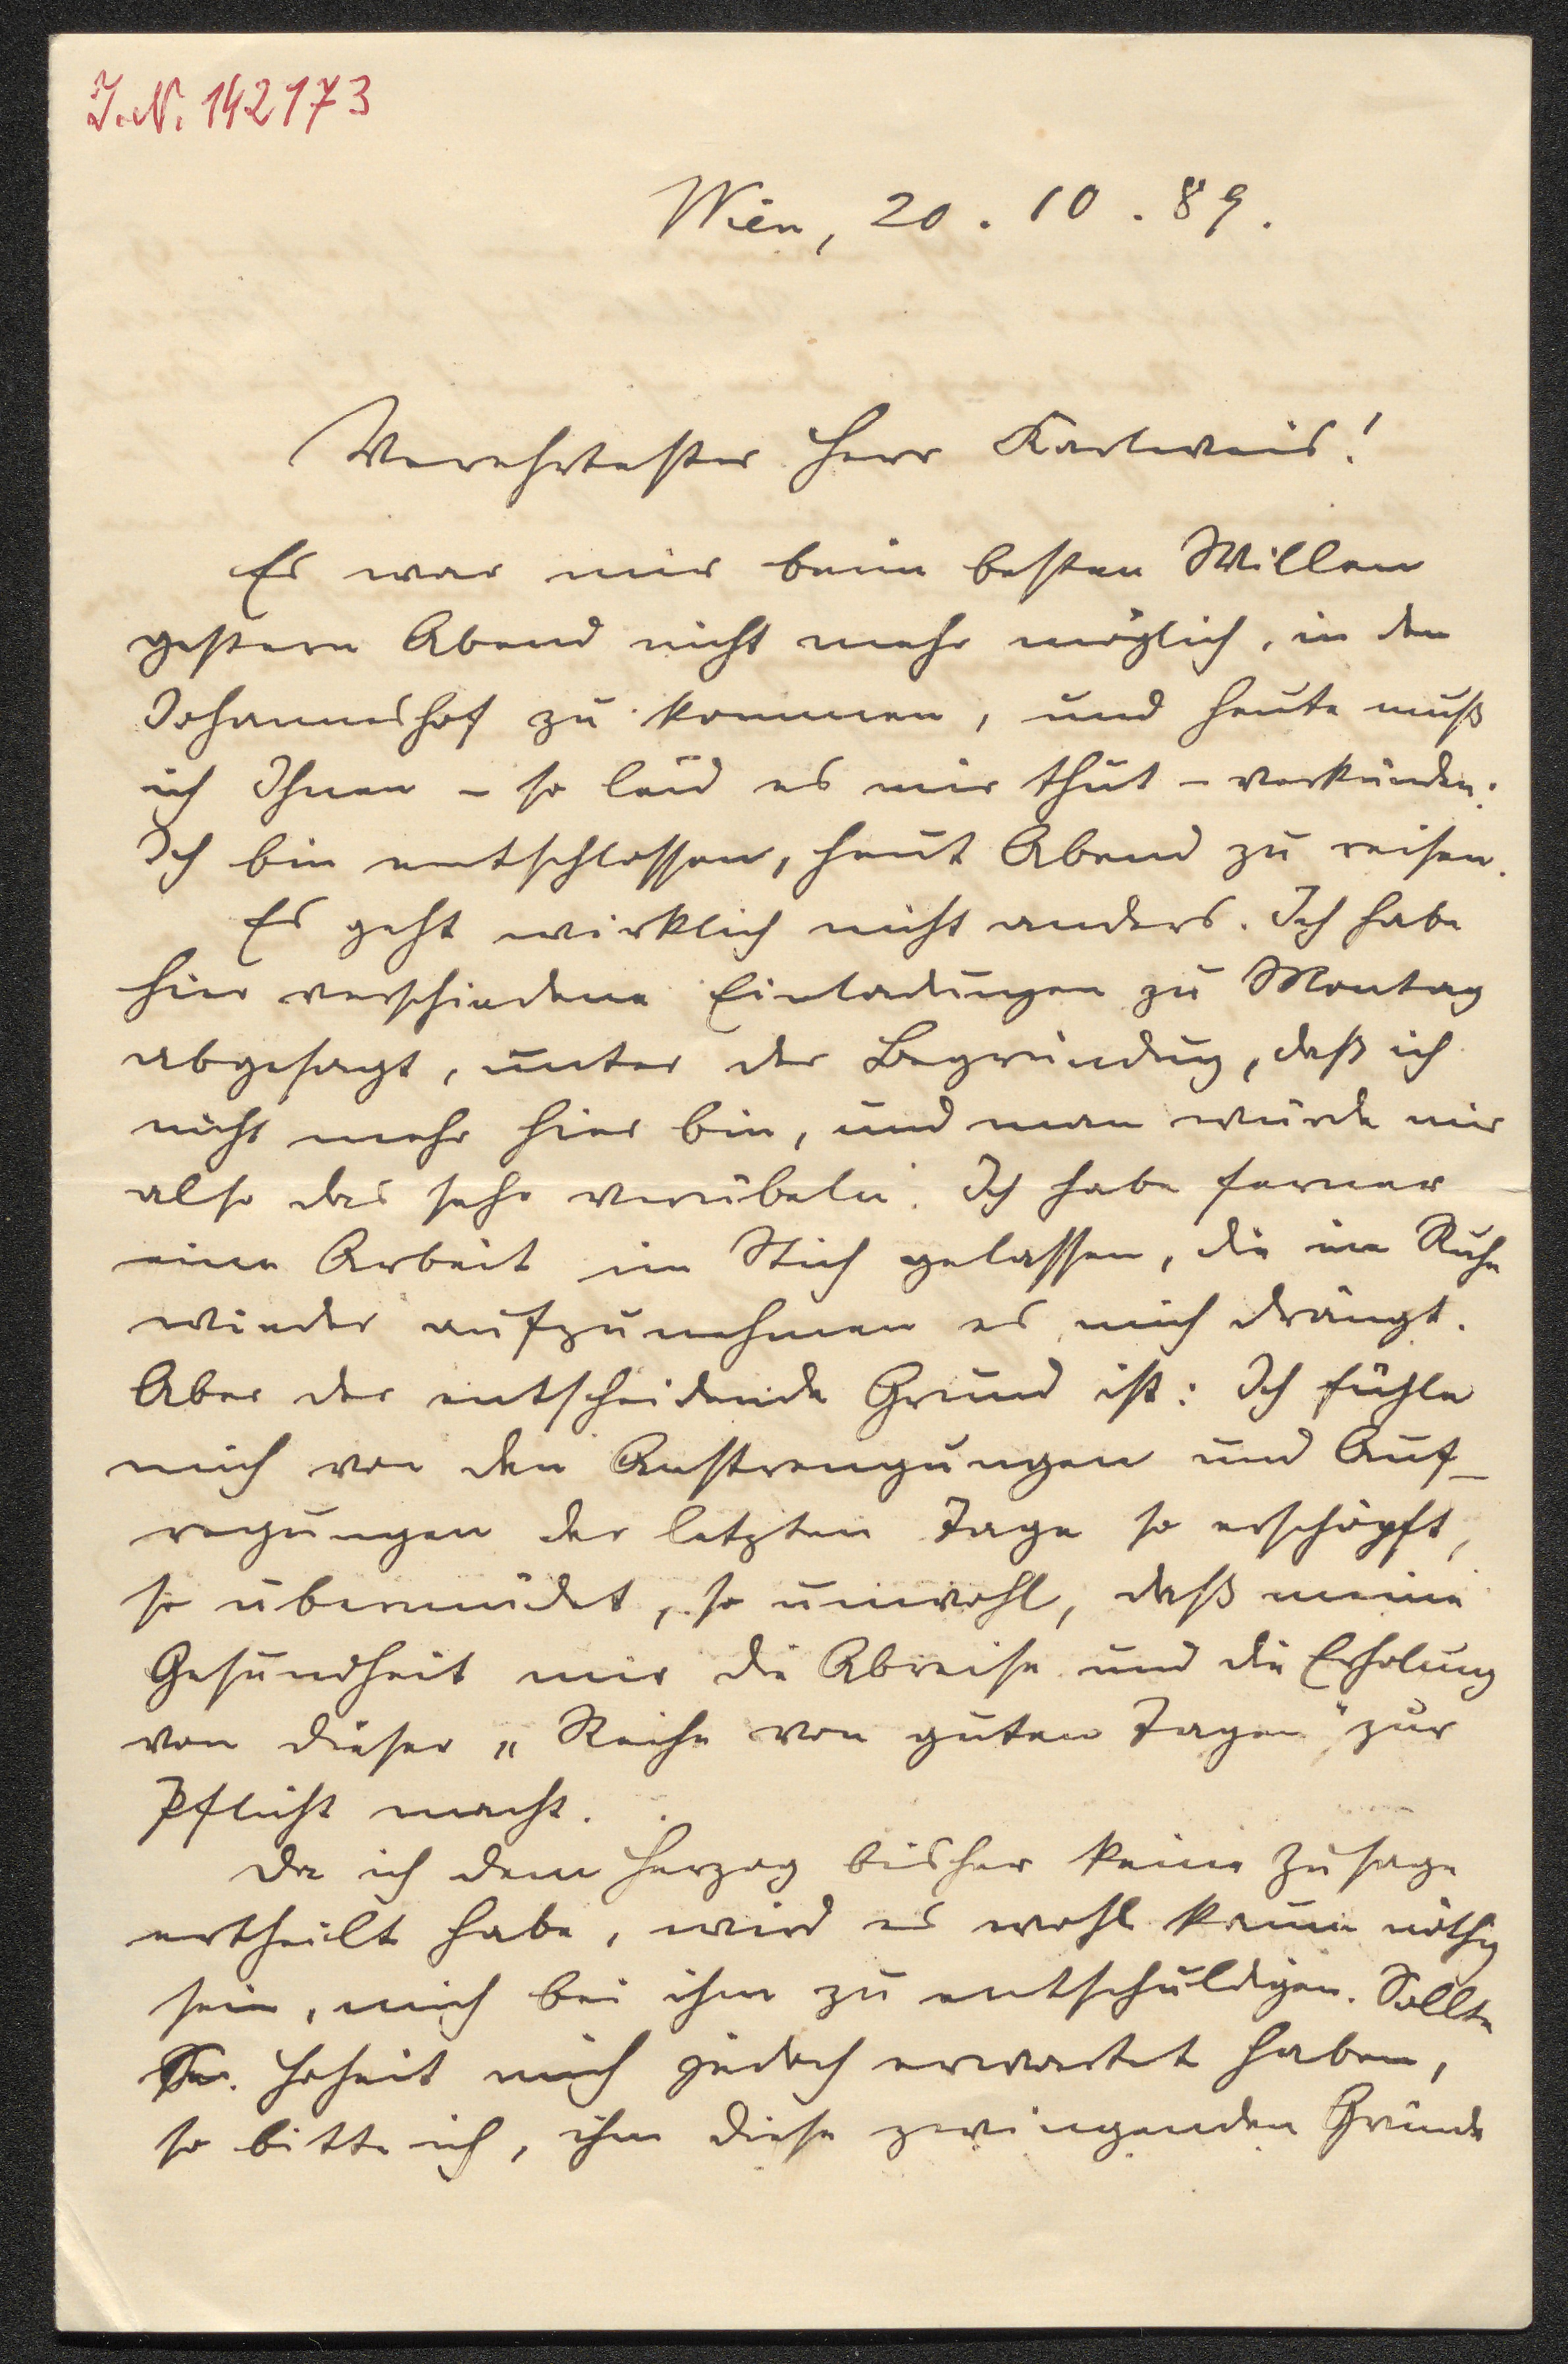 J.N. 142173
Wien, 20. 10. 89.
Verehrtester Herr Karlweis!
Es war mir beim besten Willen
gestern Abend nicht mehr möglich, in den
Johanneshof zu kommen, und heute muß
ich Ihnen – so leid es mir thut – verkünden:
Ich bin entschlossen, heut Abend zu reisen.
Es geht wirklich nicht anders. Ich habe
hier verschiedene Einladungen zu Montag
abgesagt, unter der Begründung, daß ich
nicht mehr hier bin, und man würde mir
also das sehr verübeln. Ich habe ferner
eine Arbeit im Stich gelassen, die in Ruhe
wieder aufzunehmen es mich drängt.
Aber der entscheidende Grund ist: Ich fühle
mich von den Anstrengungen und Auf-
regungen der letzten Tage so erschöpft,
so übermüdet, so unwohl, daß meine
Gesundheit mir die Abreise und die Erholung
von dieser „Reihe von guten Tagen" zur
Pflicht macht.
Da ich dem Herzog bisher keine Zusage
ertheilt habe, wird es wohl kaum nöthig
sein, mich bei ihm zu entschuldigen. Sollte
Se. Hoheit mich jedoch erwartet haben,
so bitte ich, ihm diese zwingenden Gründe